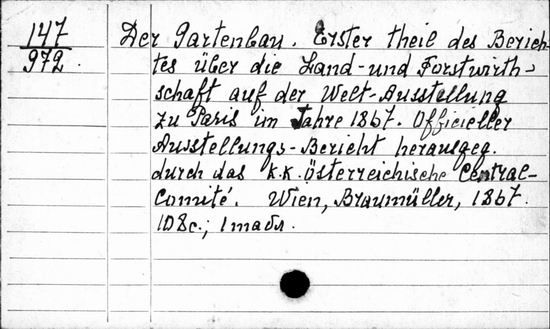 147 Der Gartenbau. Erster theil des Berich-
972. tes über die Land- und Forstwirth-
schaft auf der Welt-Ausstellung
zu Paris im Jahre 1867. Officieller
Ausstellungs-Bericht herausgeg.
durch das k.k. Österreichische Central-
Comité. Wien, Braumüller, 1867.
108c.;